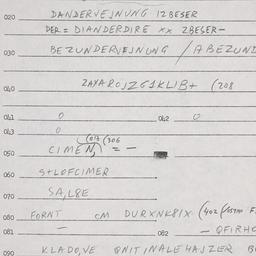 020 DANDERVEJNUNG 12BESER
DER = DIANDERDIRE xx 2BESER-
030 BEZUNDERVEJNUNG / ABEZUND
040 (208
041 0 042 0
043 0
050 CIMEN, = - (306
060 S+LOFCIMER
070 SA,L8E
080 FORNT CM DURXNK8IX (402
081 - 082 - QFIRHO
090 KLADO,VE QNITINALEHAJZER